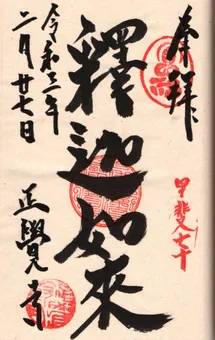 奉拜
甲斐七十
釋迦如來
令和三年
二月廿七日
正覺寺